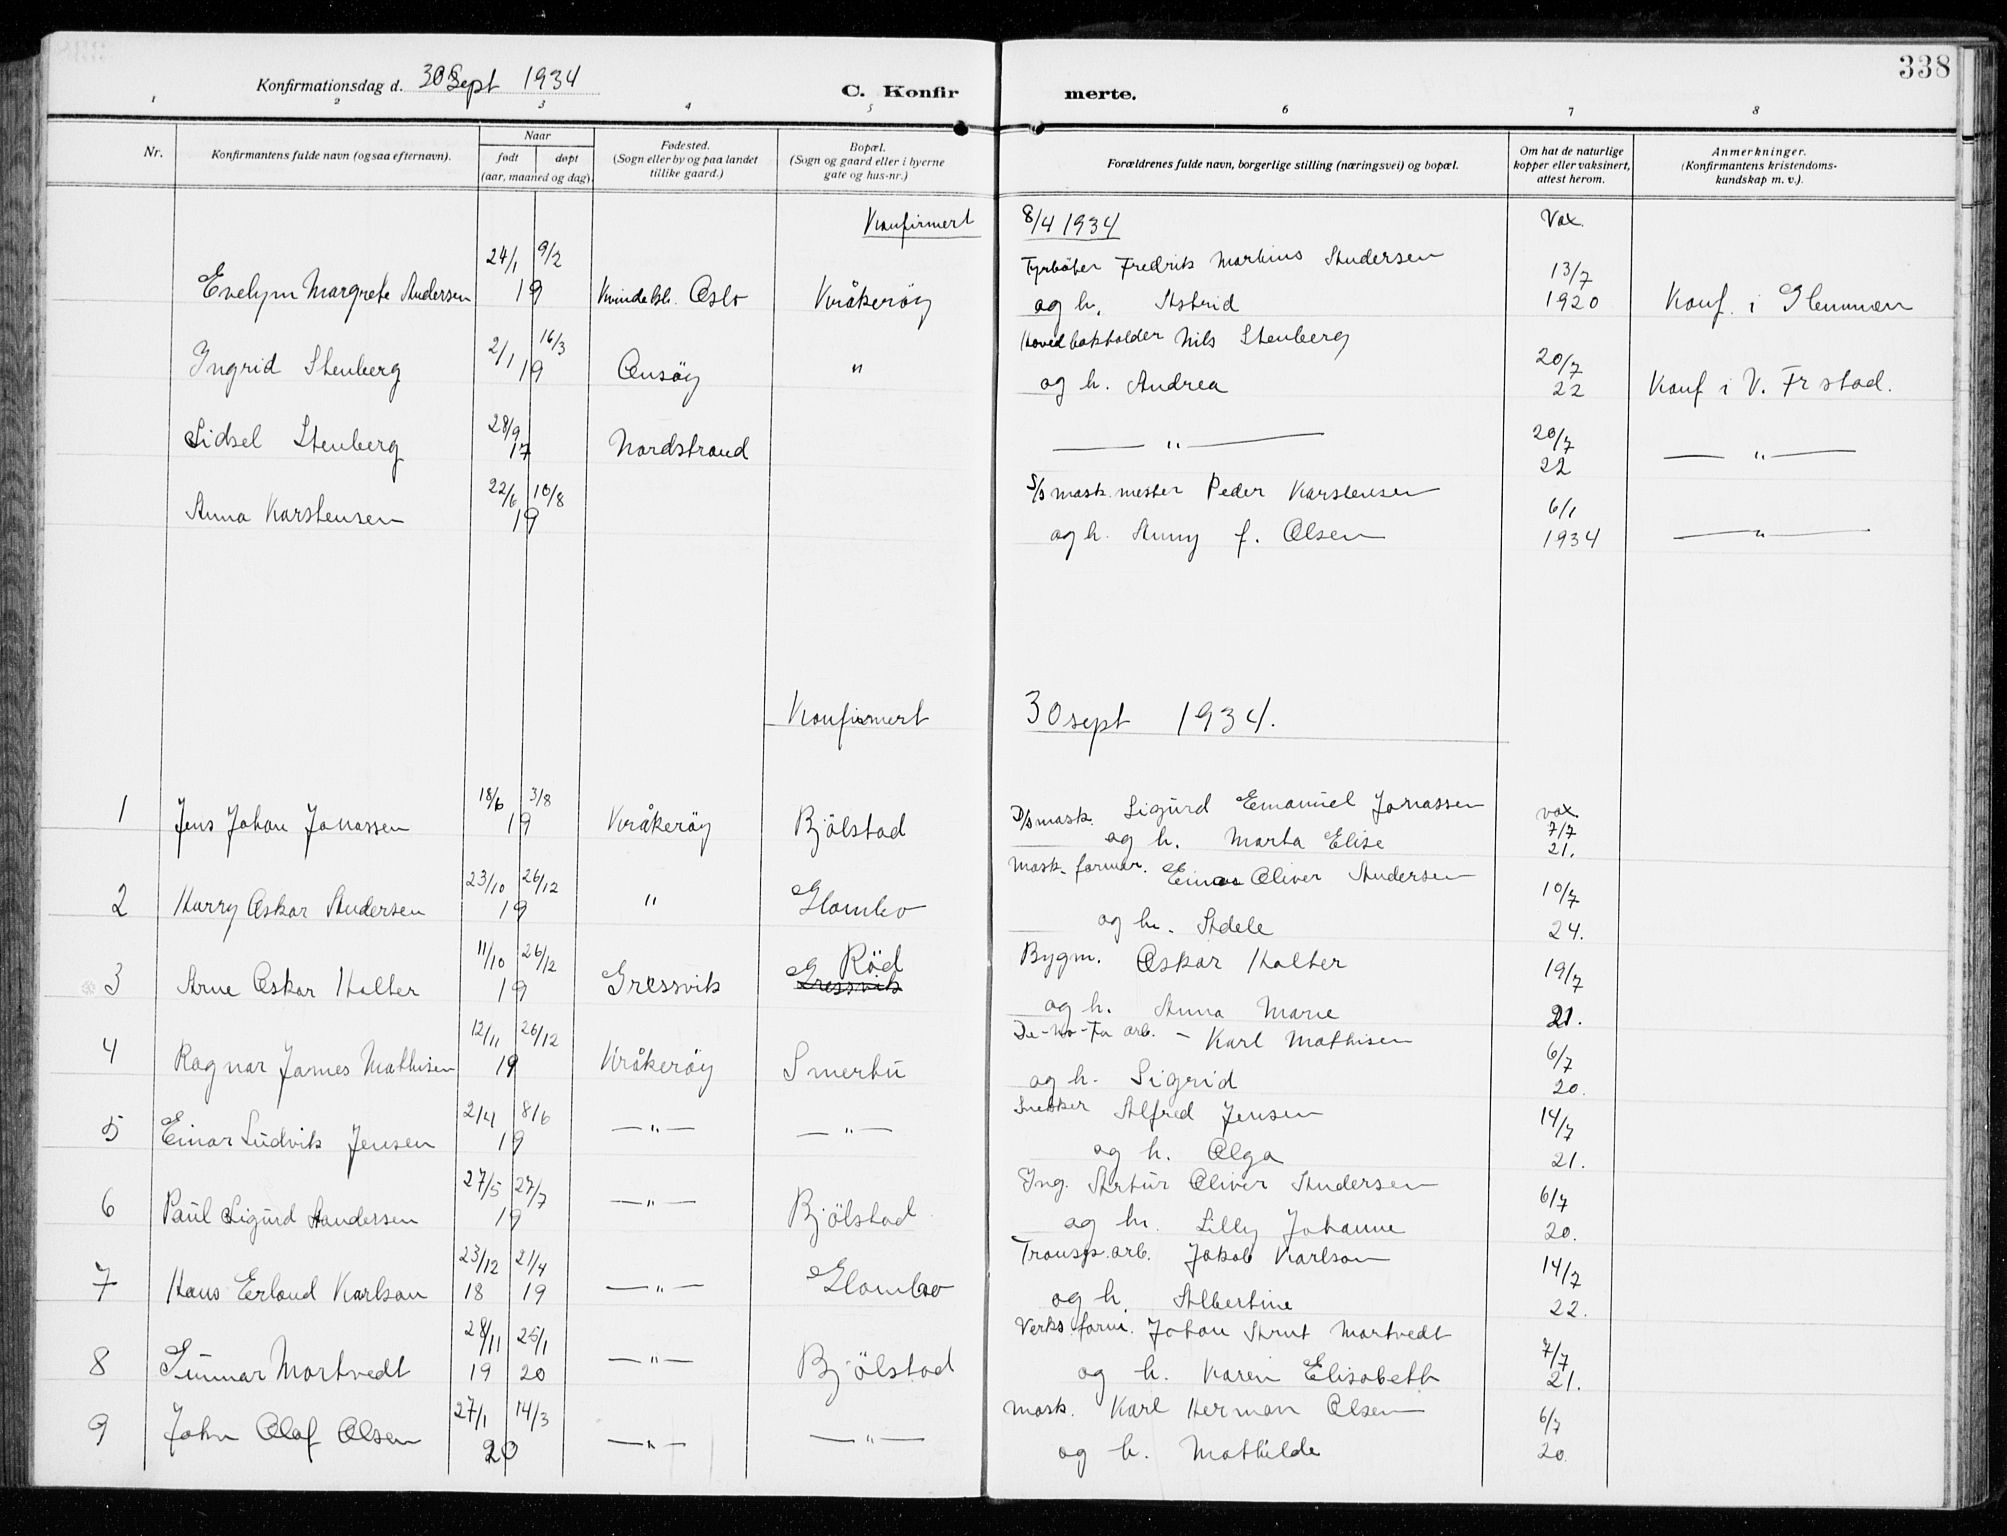 338
Konfirmationsdag d. 30 Sept 1934
C. Konfirmerte.
1 2 3 4 5 6 7 8
Nr.
Konfirmantens fulde navn (ogsaa efternavn).
Naar
født døpt
(aar, maaned og dag).
Fødested.
(Sogn eller by og paa landet
tillike gaard.)
Bopæl.
(Sogn og gaard eller i byerne
gate og hus-nr.)
Forældrenes fulde navn, borgerlige stilling (næringsvei) og bopæl.
Om hat de naturlige
kopper eller vaksinert,
attest herom.
Anmerkninger.
(Konfirmantens kristendoms-
kundskap m. v.).
Konfirmert 8/4 1934 Vax.
24/1 9/2 Fyrbøter Fredrik Martinus Andersen 13/7
Evelyn Margrete Andersen 19 Kvindekl. Oslo Kråkerøy og h. Astrid 1920 Konf. i Glemmen
2/1 16/3 Hovedbokholder Nils Stenberg 20/7
Ingrid Stenberg 19 Onsøy " og h. Andrea 22 Konf i V. Frstad.
28/9 20/7
Sidsel Stenberg 17 Nordstrand — " — 22 — " —
22/6 10/8 S/s mask. mester Peder Karstensen 6/1
Anna Karstensen 19 og h. Anny f. Olsen 1934 — " —
Konfirmert 30 sept 1934.
18/6 3/8 D/s mask. Sigurd Emanuel Jonassen vax
1 Jens Johan Jonassen 19 Kråkerøy Bjölstad og h. Marta Elise 7/7 21.
23/10 26/12 Mask. formar. Einar Oliver Andersen 10/7
2 Harry Oskar Andersen 19 " Glombo og h. Adele 24.
11/10 26/12 Röd Bygm. Oskar Halter 19/7
3 Arne Oskar Halter 19 Gressvik Gressvik og h. Anna Marie 21.
12/11 26/12 De-No-Fa arb. - Karl Mathisen 6/7
4 Ragnar James Mathisen 19 Kråkerøy Smertu og h. Sigrid 20.
2/4 8/6 Snekker Alfred Jensen 14/7
5 Einar Ludvik Jensen 19 — " — — " — og h. Olga 21.
27/5 27/7 Ing. Artur Oliver Andersen 6/7
6 Paul Sigurd Andersen 19 — " — Bjölstad og h. Lilly Johanne 20.
23/12 21/4 Transp. arb. Jakob Karlson 14/7
7 Hans Erland Karlson 18 19 — " — Glombo og h. Albertine 22.
28/11 25/1 Verks form. Johan Arnt Mortvedt 7/7
8 Gunnar Mortvedt 19 20 — " — Bjölstad og h. Karen Elisabeth 21.
27/1 14/3 Mask. Karl Herman Olsen 6/7
9 John Olaf Olsen 20 — " — — " — og h. Mathilde 20.